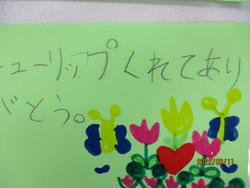 ューリップくれてあり
がとう。
2022/03/11